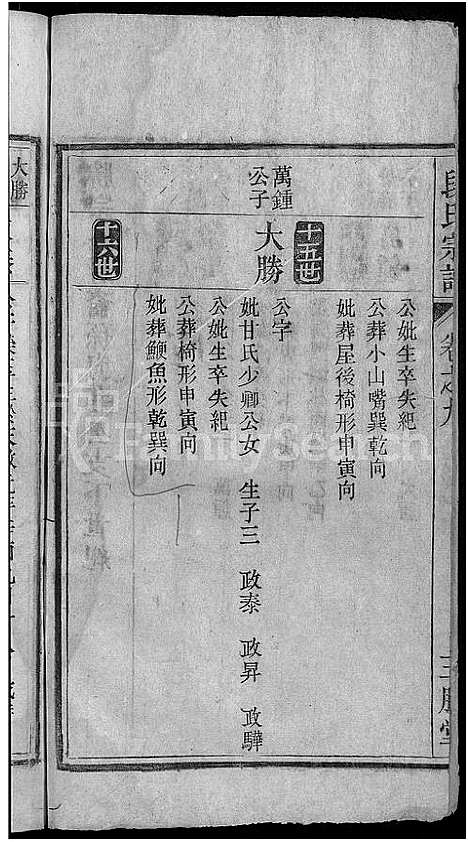 段氏宗譜
卷之九
公妣生卒失紀
公葬小山嘴巽乾向
妣葬屋後椅形申寅向
十五世
萬鍾公子
大勝
公字
妣甘氏少卿公女 生子三 政泰 政昇 政驊
公妣生卒失紀
公葬椅形申寅向
妣葬鰱魚形乾巽向
十六世
大勝
FamilySearch